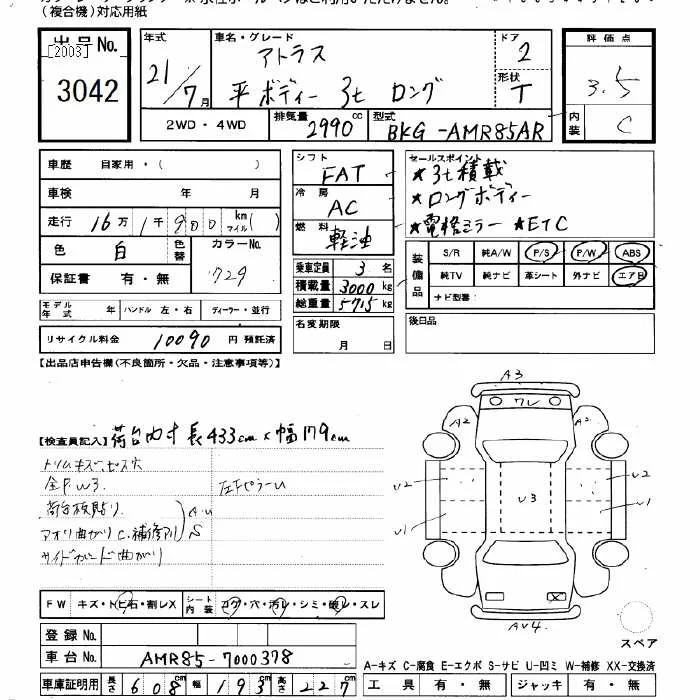 (複合機)対応用紙
出品No.
[2003]
3042
年式
21/7月
車名・グレード
アトラス
平ボディー 3t ロング
ドア
2
形状
T
評価点
3.5
内装
C
2WD・4WD
排気量
2990cc
型式
BKG-AMR85AR
車歴 自家用・( )
車検 年 月
走行 16万1千900 km マイル( )
色 白 色替 カラーNo. 729
保証書 有・無
モデル年式 年 ハンドル 左・右 ディーラー・並行
リサイクル料金 10090 円 預託済
シフト FAT
冷房 AC
燃料 軽油
乗車定員 3 名
積載量 3000 kg
総重量 5715 kg
名変期限
月 日
セールスポイント
★3t積載
★ロングボディー
★電格ミラー ★ETC
装備品
S/R 純A/W P/S P/W ABS
純TV 純ナビ 革シート 外ナビ エアB
ナビ型番:
後日品
【出品店申告欄(不良箇所・欠品・注意事項等)】
【検査員記入】荷台内寸 長433cm×幅179cm
トリムキズ、ビス穴
全F.W3
左Fピラーu
荷台板貼り
A.U
アオリ曲がりC、補修アリ
S
サイドガード曲がり
FW キズ・トビ石・割レX シート内装 コゲ・穴・汚レ・シミ・破レ・スレ
登録No.
車台No. AMR85-7000378
車庫証明用 長さ 608cm 幅 193cm 高さ 227cm
A3
ワレ
A2
A2
U2
U2
U3
U1
U1
X
AU4
スペア
A-キズ C-腐食 E-エクボ S-サビ U-凹ミ W-補修 XX-交換済
工具 有・無 ジャッキ 有・無